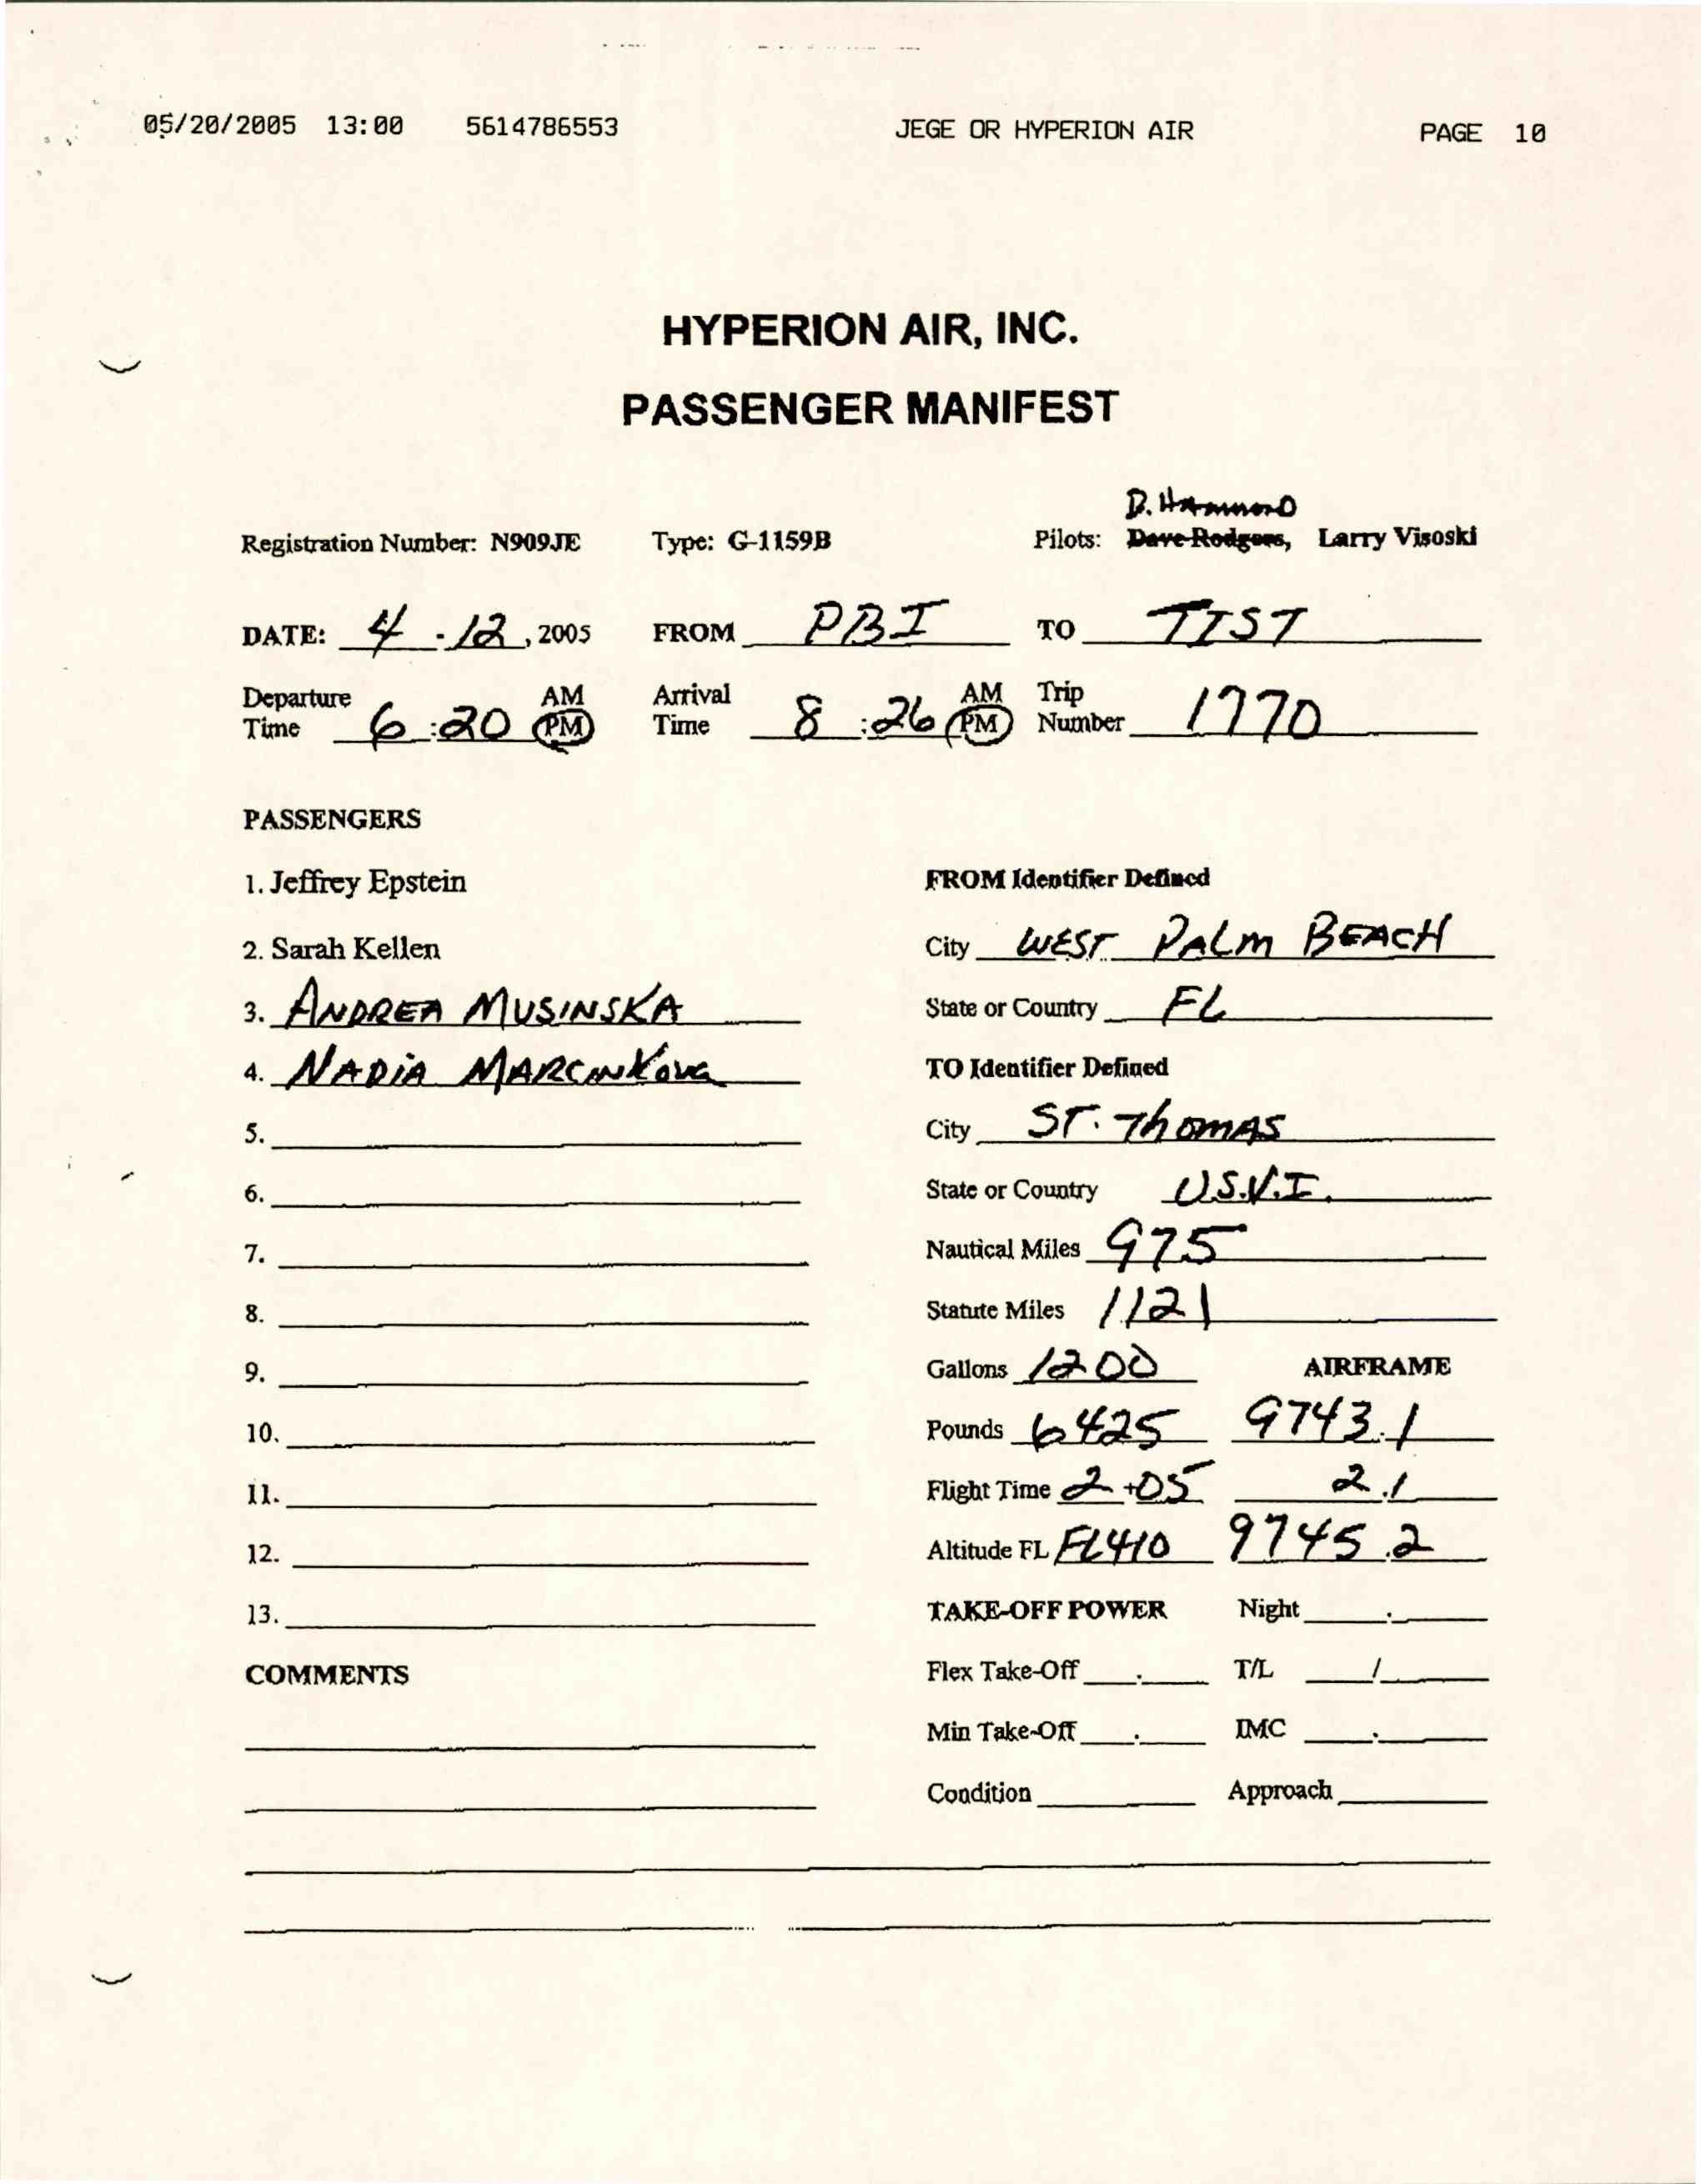 05/20/2005 13:00 5614786553 JEGE OR HYPERION AIR PAGE 10
HYPERION AIR, INC.
PASSENGER MANIFEST
B. HAMMOND
Registration Number: N909JE Type: G-1159B Pilots: Dave Rodgers, Larry Visoski
DATE: 4 . 12, 2005 FROM PBI TO TIST
Departure AM Arrival AM Trip
Time 6:20 PM Time 8:26 PM Number 1770
PASSENGERS
1. Jeffrey Epstein FROM Identifier Defined
2. Sarah Kellen City WEST PALM BEACH
3. ANDREA MUSINSKA State or Country FL
4. NADIA MARCINKOVA TO Identifier Defined
5. City ST. THOMAS
6. State or Country U.S.V.I.
7. Nautical Miles 975
8. Statute Miles 1121
9. Gallons 1200 AIRFRAME
10. Pounds 6425 9743.1
11. Flight Time 2+05 2.1
12. Altitude FL FL410 9745.2
13. TAKE-OFF POWER Night .
COMMENTS Flex Take-Off . T/L /
Min Take-Off . IMC .
Condition Approach